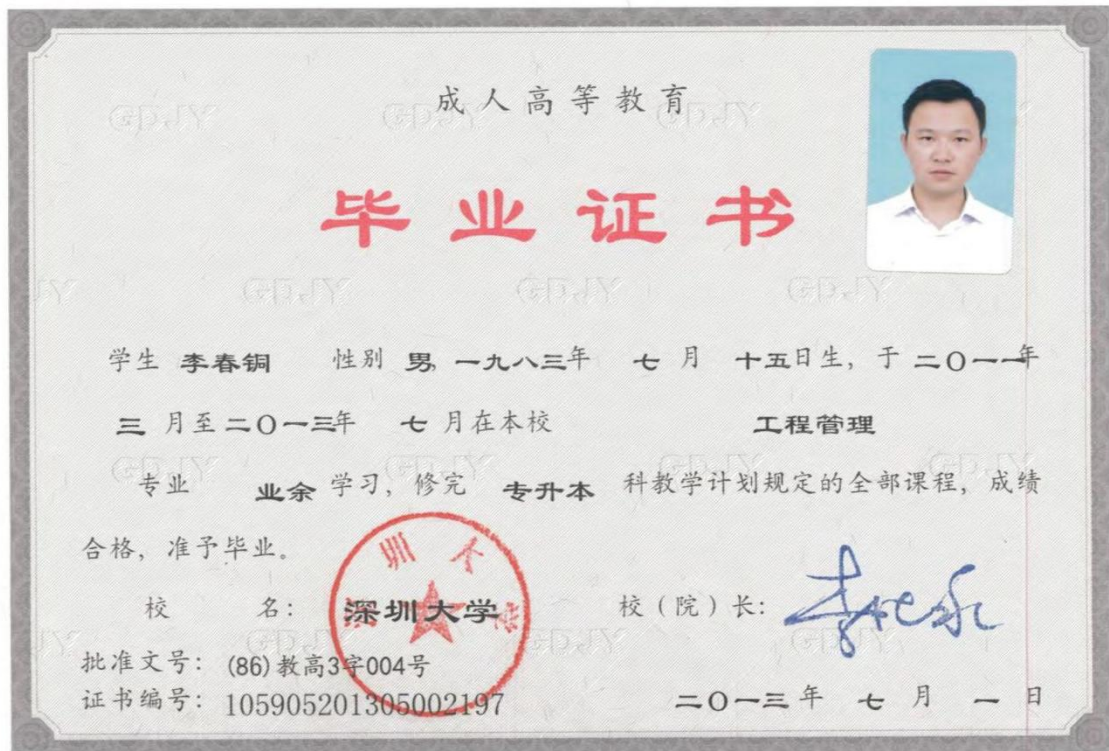 成人高等教育
毕业证书
学生 李春铜 性别 男, 一九八三年 七 月 十五日生, 于 二〇一一年
三 月至二〇一三年 七 月在本校 工程管理
专业 业余 学习, 修完 专升本 科教学计划规定的全部课程, 成绩
合格, 准予毕业。
校 名: 深圳大学 校(院)长:
批准文号: (86)教高3字004号
证书编号: 105905201305002197
二〇一三年 七 月 一 日
GDJY